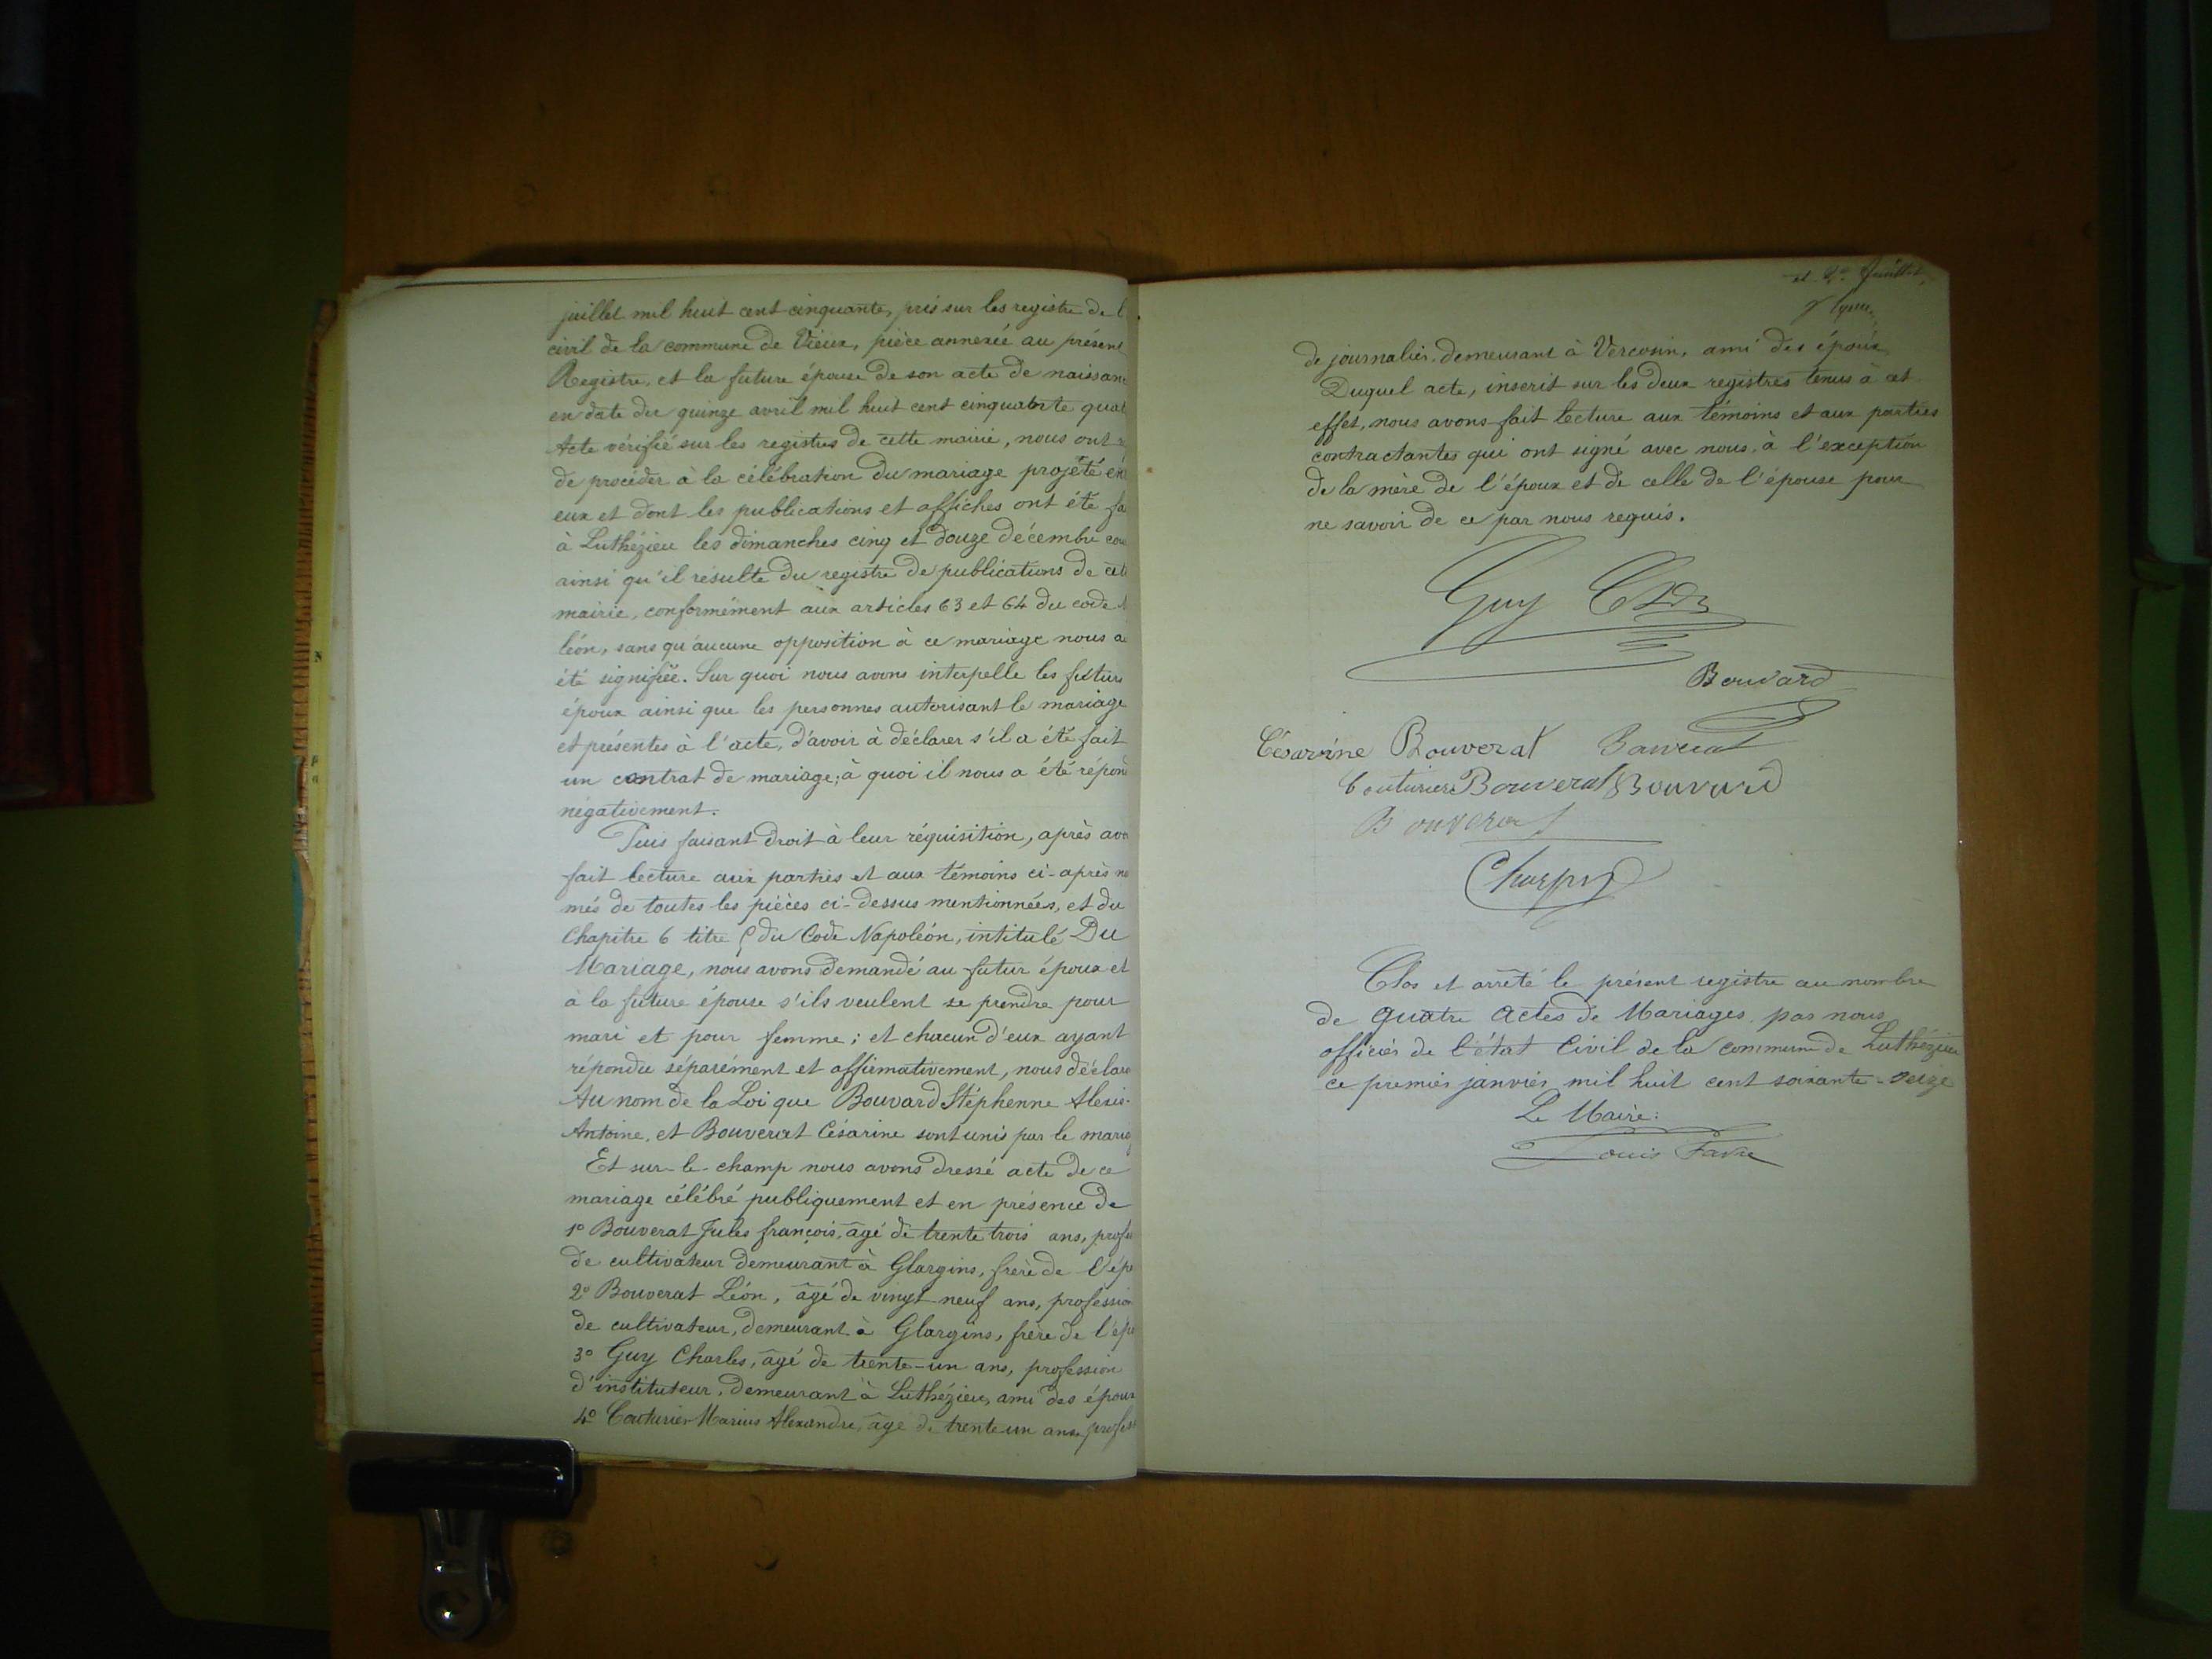 juillet mil huit cent cinquante, pris sur les registre de l
civil de la commune de Vieux, pièce annexée au présent
Registre, et la future épouse de son acte de naissan
en date du quinze avril mil huit cent cinquante quat
Acte vérifié sur les registres de cette mairie, nous ont
de procéder à la célébration du mariage projété
eux et dont les publications et affiches ont été fa
à Luthézieu les dimanches cinq et douze décembre cou
ainsi qu'il résulte du registre de publications de cet
mairie, conformément aux articles 63 et 64 du code
léon, sans qu'aucune opposition à ce mariage nous a
été signifiée. Sur quoi nous avons interpellé les futurs
époux ainsi que les personnes autorisant le mariage
et présentes à l'acte, d'avoir à déclarer s'il a été fait
un contrat de mariage; à quoi il nous a été répon
négativement.
Puis faisant droit à leur réquisition, après avo
fait lecture aux parties et aux témoins ci-après no
més de toutes les pièces ci-dessus mentionnées, et du
Chapitre 6 titre 5 du Code Napoléon, intitulé Du
Mariage, nous avons demandé au futur époux et
à la future épouse s'ils veulent se prendre pour
mari et pour femme; et chacun d'eux ayant
répondu séparément et affirmativement, nous déclaro
Au nom de la Loi que Bouvard Stéphenne Alexis-
Antoine, et Bouverat Césarine sont unis par le mariag
Et sur-le-champ nous avons dressé acte de ce
mariage célébré publiquement et en présence de
1° Bouverat Jules françois, âgé de trente trois ans, profes
de cultivateur demeurant à Glargins, frère de l'épo
2° Bouverat Léon, âgé de vingt-neuf ans, profession
de cultivateur, demeurant à Glargins, frère de l'épo
3° Guy Charles, âgé de trente-un ans, profession
d'instituteur, demeurant à Luthézieu, ami des époux
4° Couturier Marius Alexandre, âgé de trente un ans, profess
de journalier demeurant à Vercosin, ami des époux
Duquel acte, inscrit sur les deux registres tenus à cet
effet, nous avons fait lecture aux témoins et aux parties
contractantes qui ont signé avec nous, à l'exception
de la mère de l'époux et de celle de l'épouse pour
ne savoir de ce par nous requis.
Guy
Bouvard
Césarine Bouverat Bouverat
Couturier Bouverat Bouvard
Bouverat
Clos et arrêté le présent registre au nombre
de quatre actes de Mariages par nous
officier de l'état Civil de la commune de Luthézieu
ce premier janvier mil huit cent soixante-seize
Le Maire:
Louis Favre